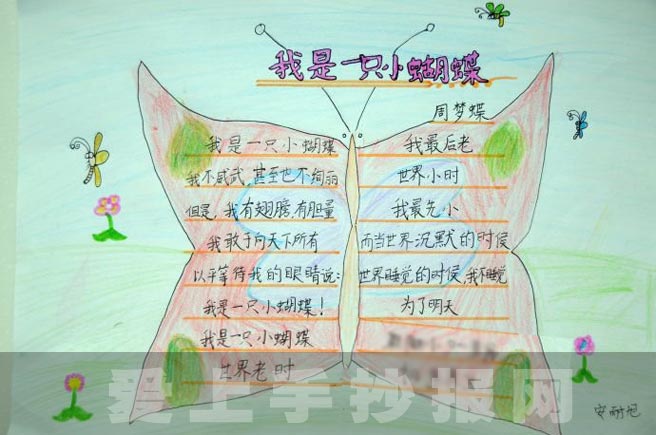 我是一只小蝴蝶
周梦蝶
我是一只小蝴蝶
我不威武,甚至也不绚丽
但是,我有翅膀,有胆量
我敢于向天下所有
以平等待我的眼睛说:
我是一只小蝴蝶!
我是一只小蝴蝶
世界老时
我最后老
世界小时
我最先小
而当世界沉默的时候
世界睡觉的时候,我不睡觉
为了明天
爱上手抄报网